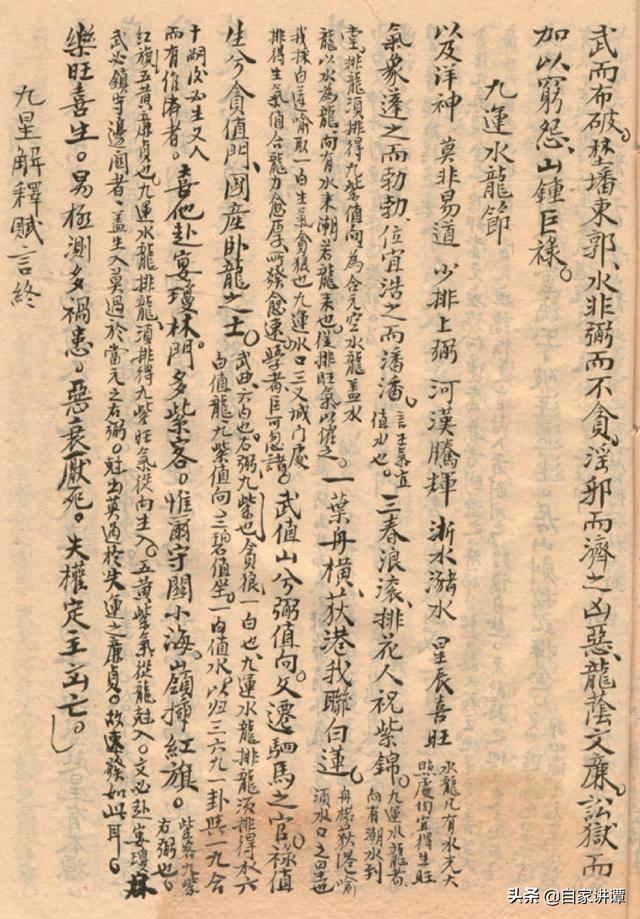 武而布破。埜墦東郭、水非弼而不貪、淫邪而濟之凶惡、龍蔭文廉。訟獄而
加以窮怨、山鍾巨祿。
九運水龍節
以及洋神 莫非易道 少排上弼 河漢騰輝 淅水瀦水 星辰喜旺 水龍凡有水光大
照處均宜得生旺
氣象蓬之而勃勃、位宜浩之而潘潘。言王氣宜
值水也。三春浪滚、排花人祝紫錦。九運水龍者
向有潮水到
堂。排龍須排得九紫值向、為全元空水龍蓋水
龍以水為龍、向有水来潮若龍来也、催排旺氣以值之。一葉舟橫、荻港我聯白蓮。舟橫荻港喻
須水口之星也
我採白蓮喻取一白生氣貪狼也九運水口三叉城门處
排得生氣值合龍力愈厚、所發愈速。學者、叵可忽諸。武值山兮弼值向。文遷駟馬之官。祿值
生兮貪值門、國産卧龍之士。武曲六白也右弼九紫也貪狼一白也九運水龍排龍須排得水六
白值龍九紫值向三碧值坐。一白值水以归三六九一卦與一九合
十嗣後必生又人
而有作爲者。喜他赴宴瓊林。門多紫客。惟爾守關小海、嶺揷紅旗。紫客九紫
右弼也。
紅旗五黄廉貞也九運水龍排龍須排得九紫旺氣從向主入。五黄紫氣從龍尅入。文必赴宴瓊林
武必鎮守邊閫者、盖生入莫過於當元之右弼。尅出莫過於失運之廉貞。故速發如此耳。
樂旺喜生。易極測多禍患。惡衰厭死。失權定主立亡。
九星解釋賦言終
头条 @自家讲谭